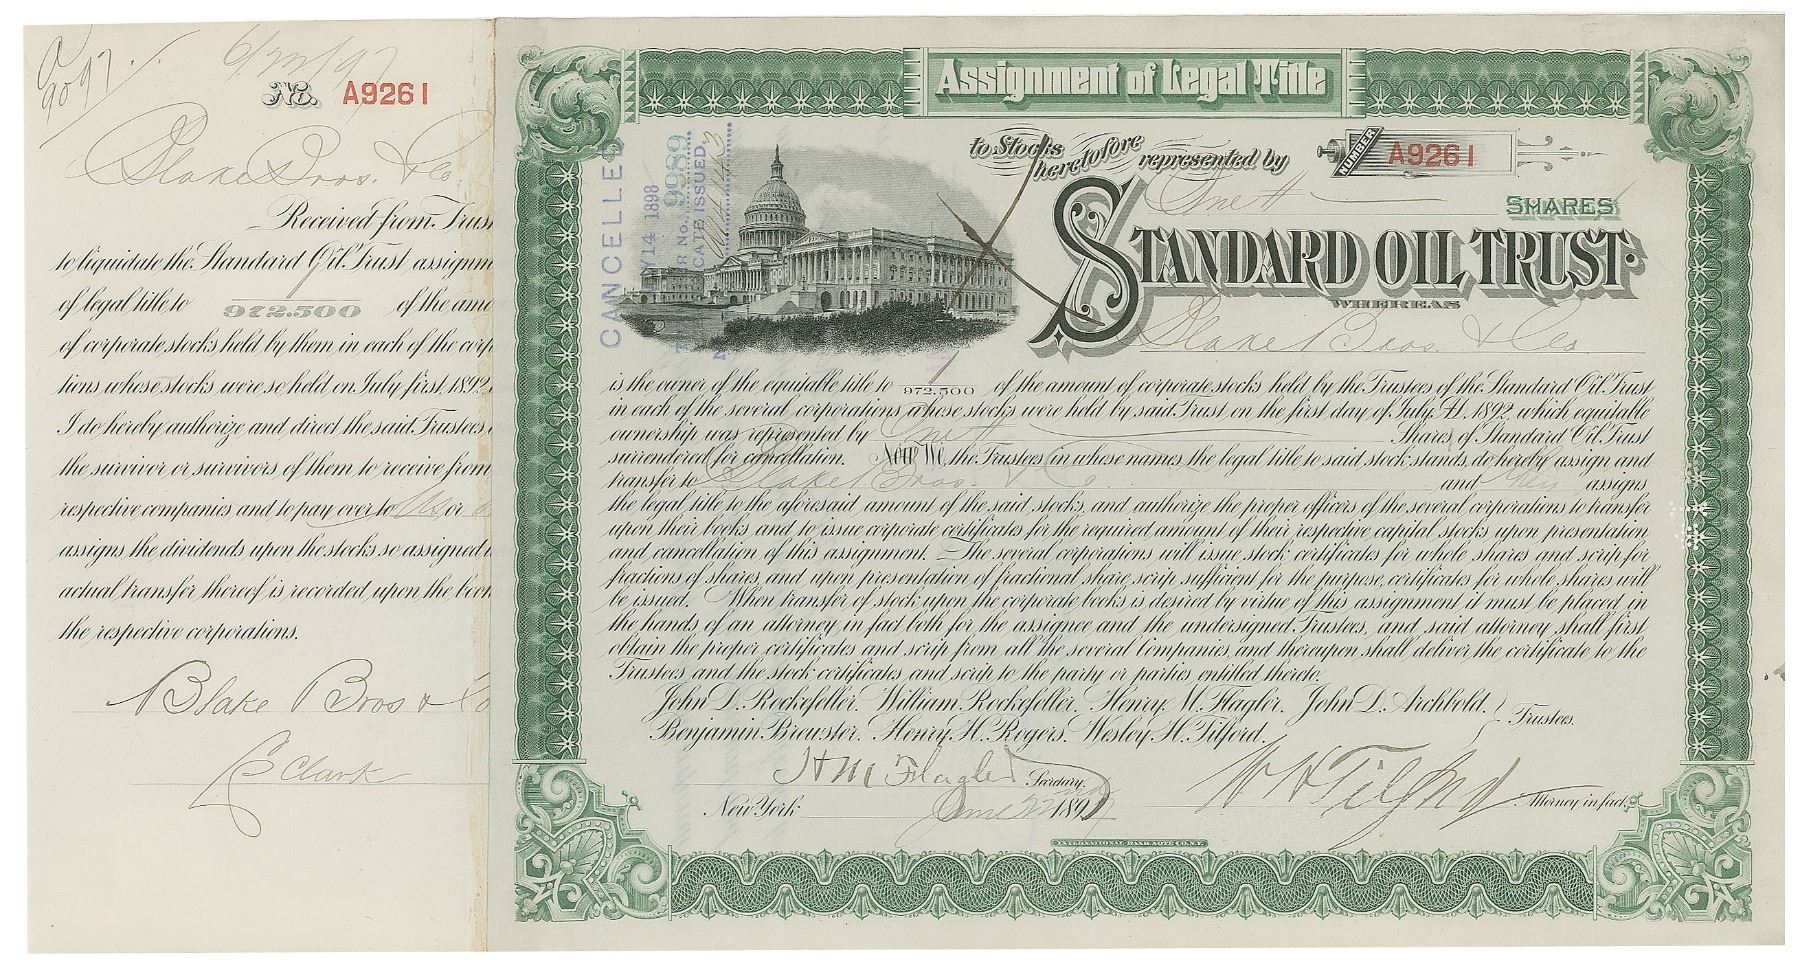 9097
6/22/97
No. A9261
Blake Bros. & Co.
Received from Trus
to liquidate the Standard Oil Trust assignm
of legal title to 1/972.500 of the amo
of corporate stocks held by them in each of the corp
tions whose stocks were so held on July first, 1892,
I do hereby authorize and direct the said Trustees
the survivor or survivors of them to receive from
respective companies and to pay over to us or
assigns the dividends upon the stocks so assigned
actual transfer thereof is recorded upon the book
the respective corporations.
Blake Bros & Co
Clark
Assignment of Legal Title
to Stocks heretofore represented by
NUMBER A9261
One SHARES
STANDARD OIL TRUST.
WHEREAS
Blake Bros. & Co
is the owner of the equitable title to 1/972.500 of the amount of corporate stocks held by the Trustees of the Standard Oil Trust
in each of the several corporations whose stocks were held by said Trust on the first day of July A.D. 1892, which equitable
ownership was represented by One Shares of Standard Oil Trust
surrendered for cancellation. Now We, the Trustees in whose names the legal title to said stock stands, do hereby assign and
transfer to Blake Bros. & Co. and their assigns
the legal title to the aforesaid amount of the said stocks, and authorize the proper officers of the several corporations to transfer
upon their books and to issue corporate certificates for the required amount of their respective capital stocks upon presentation
and cancellation of this assignment. The several corporations will issue stock certificates for whole shares and scrip for
fractions of shares, and upon presentation of fractional share scrip sufficient for the purpose, certificates for whole shares will
be issued. When transfer of stock upon the corporate books is desired by virtue of this assignment it must be placed in
the hands of an attorney in fact both for the assignee and the undersigned Trustees, and said attorney shall first
obtain the proper certificates and scrip from all the several Companies, and thereupon shall deliver the certificate to the
Trustees and the stock certificates and scrip to the party or parties entitled thereto.
John D. Rockefeller. William Rockefeller. Henry M. Flagler. John D. Archbold.
Benjamin Brewster. Henry H. Rogers. Wesley H. Tilford. Trustees.
H M Flagler Secretary.
W H Tilford Attorney in fact.
New York June 22 1897
INTERNATIONAL BANK NOTE CO. N.Y.
CANCELLED
Y 14 1898
R No. 9989
CATE ISSUED,